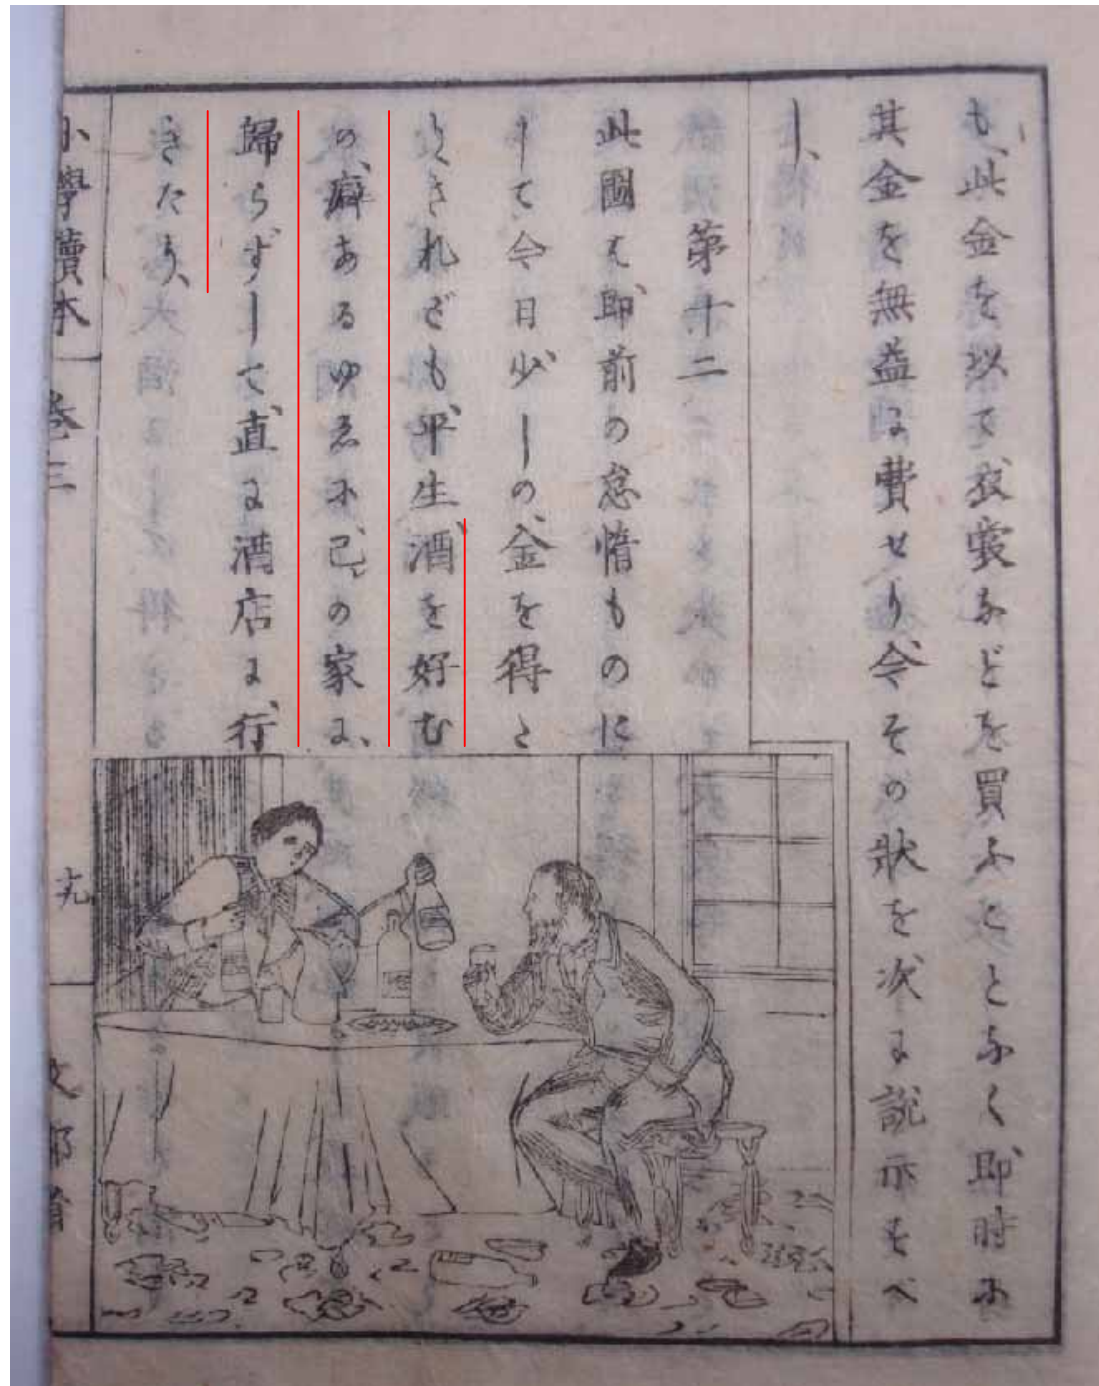 も、此金を以て衣裳などを買ふことなく即時に
其金を無益に費せり今その状を次に説示すべ
し、
第十二
此圖は、即前の怠惰ものに
して今日少しの金を得と
くきれども平生酒を好む
の、癖あるゆゑに己の家に、
歸らずして直に酒店に行
きたり、
小學讀本 卷三
十九
文部省